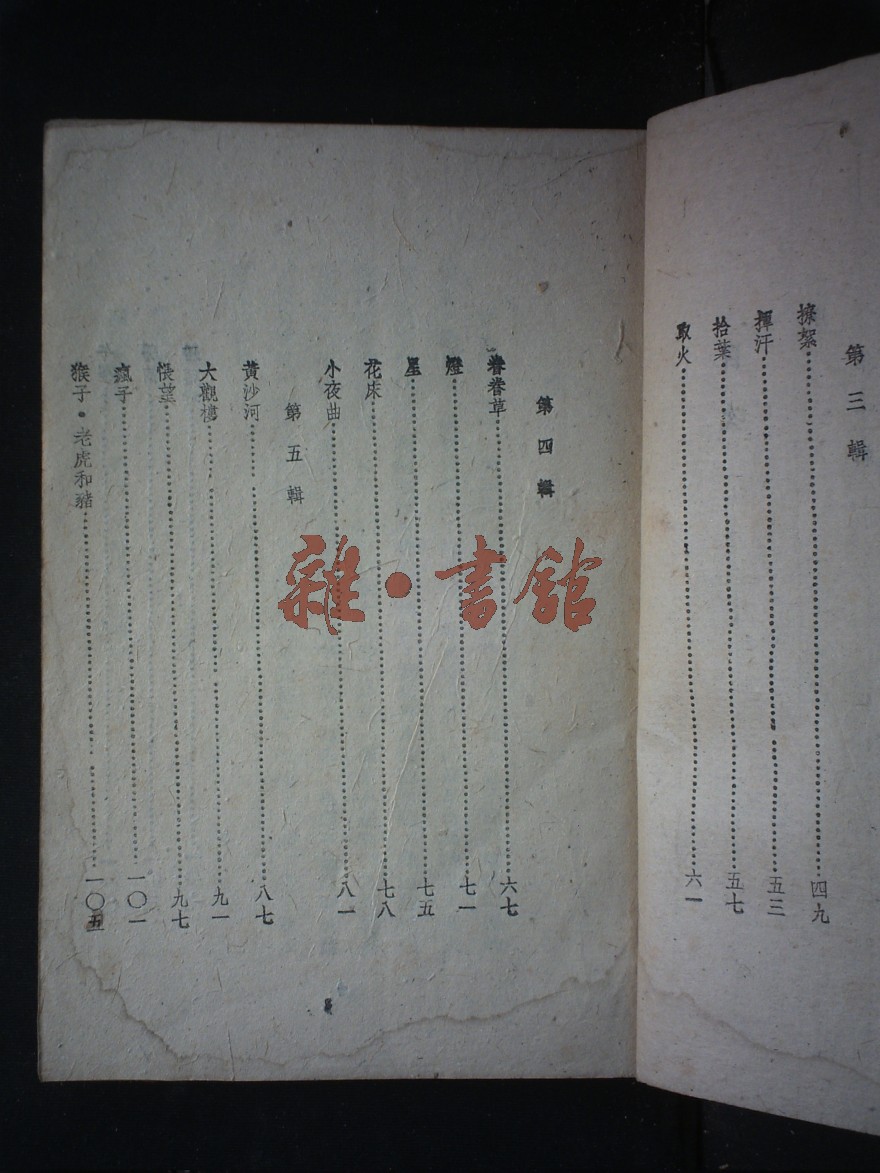 第三輯
撩絮……四九
揮汗……五三
拾葉……五七
取火……六一
第四輯
眷眷草……六七
燈……七一
星……七五
花床……七八
小夜曲……八一
第五輯
黃沙河……八七
大觀樓……九一
悵望……九七
瘋子……一〇一
猴子·老虎和豬……一〇五
雜·書館